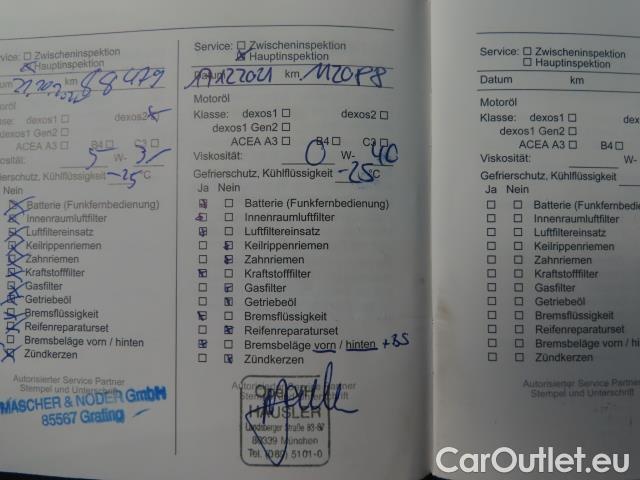 vice: Zwischeninspektion
Hauptinspektion
um km 88479
Motoröl
Klasse: dexos1 dexos2
dexos1 Gen2
ACEA A3 B4 C3
Viskosität: 5 W- 3
Gefrierschutz, Kühlflüssigkeit -25 °C
Nein
Batterie (Funkfernbedienung)
Innenraumluftfilter
Luftfiltereinsatz
Keilrippenriemen
Zahnriemen
Kraftstofffilter
Gasfilter
Getriebeöl
Bremsflüssigkeit
Reifenreparaturset
Bremsbeläge vorn / hinten
Zündkerzen
Autorisierter Service Partner
Stempel und Unterschrift
MASCHER & NODER GmbH
85567 Grafing
Service: Zwischeninspektion
Hauptinspektion
Datum 17.12.2021 km 112088
Motoröl
Klasse: dexos1 dexos2
dexos1 Gen2
ACEA A3 B4 C3
Viskosität: 0 W- 40
Gefrierschutz, Kühlflüssigkeit -25 °C
Ja Nein
Batterie (Funkfernbedienung)
Innenraumluftfilter
Luftfiltereinsatz
Keilrippenriemen
Zahnriemen
Kraftstofffilter
Gasfilter
Getriebeöl
Bremsflüssigkeit
Reifenreparaturset
Bremsbeläge vorn / hinten
Zündkerzen
HÄUSLER
Landsberger Straße 83-87
80339 München
Tel. (089) 5101-0
Service: Zwischeninspektion
Hauptinspektion
Datum km
Motoröl
Klasse: dexos1
dexos1 Gen2
ACEA A3 B4
Viskosität:
Gefrierschutz, Kühlflüssigkeit
Ja Nein
Batterie (Funkfernbedien
Innenraumluftfilter
Luftfiltereinsatz
Keilrippenriemen
Zahnriemen
Kraftstofffilter
Gasfilter
Getriebeöl
Bremsflüssigkeit
Reifenreparaturset
Bremsbeläge vorn / h
Zündkerzen
Autorisierter Service Part
Stempel und Unterschrif
CarOutlet.eu